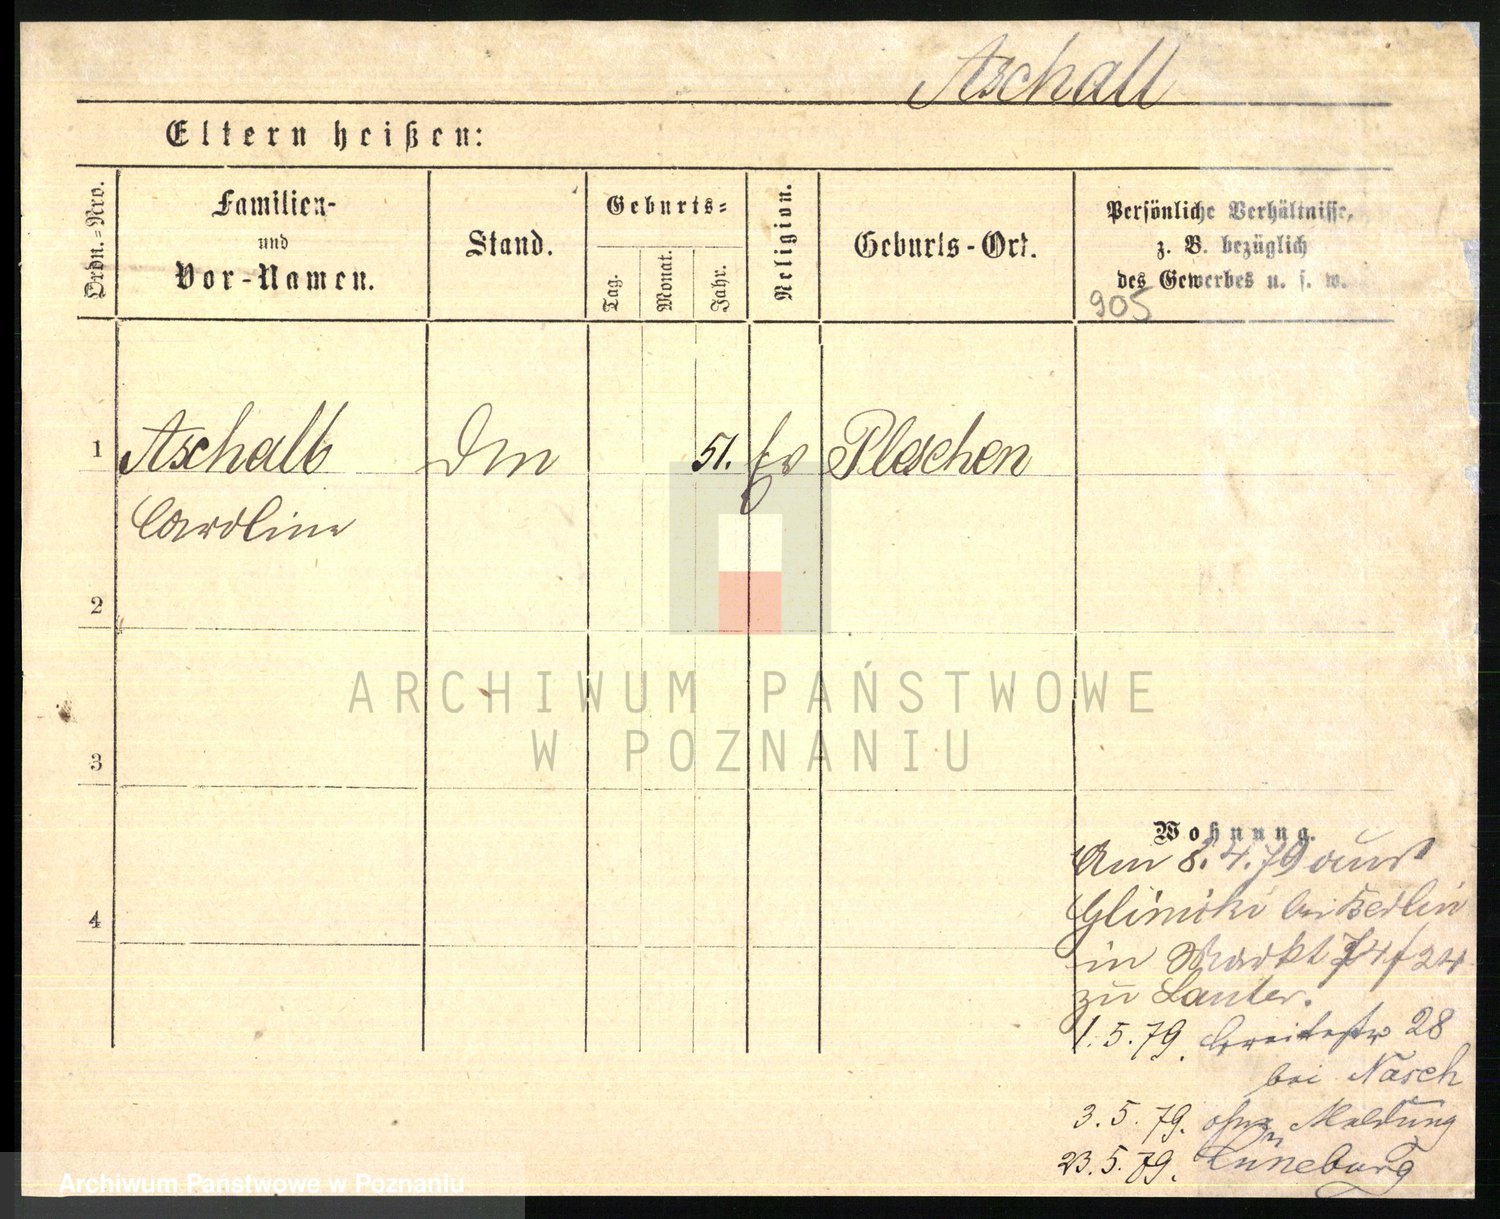 Aschall
Eltern heißen:
Ordn.=Nro.
Familien-
und
Vor-Namen.
Stand.
Geburts=
Tag.
Monat.
Jahr.
Religion.
Geburts-Ort.
Persönliche Verhältnisse,
z. B. bezüglich
des Gewerbes u. s. w.
905
1 Aschall 51. Ev Pleschen
Caroline
2
ARCHIWUM PAŃSTWOWE
W POZNANIU
3
Wohnung.
Am 8.4.79 aus
bei Berlin
4
in Markt 74/24
zu Lauter.
1.5.79. Breitestr 28
bei Nasch
3.5.79. ohne Meldung
23.5.79. Lüneburg
Archiwum Państwowe w Poznaniu